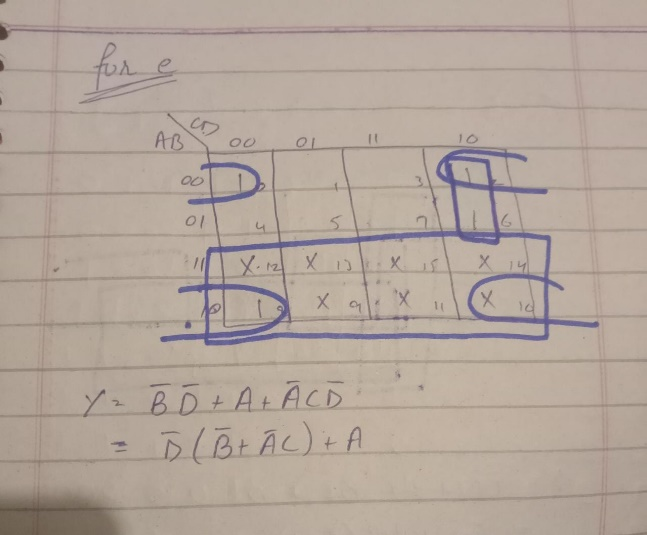 for e
CD
AB 00 01 11 10
00 1 0 1 3 1 2
01 4 5 7 1 6
11 X 12 X 13 X 15 X 14
10 1 8 X 9 X 11 X 10
Y = B̅ D̅ + A + A̅ C D̅
= D̅ ( B̅ + A̅ C ) + A